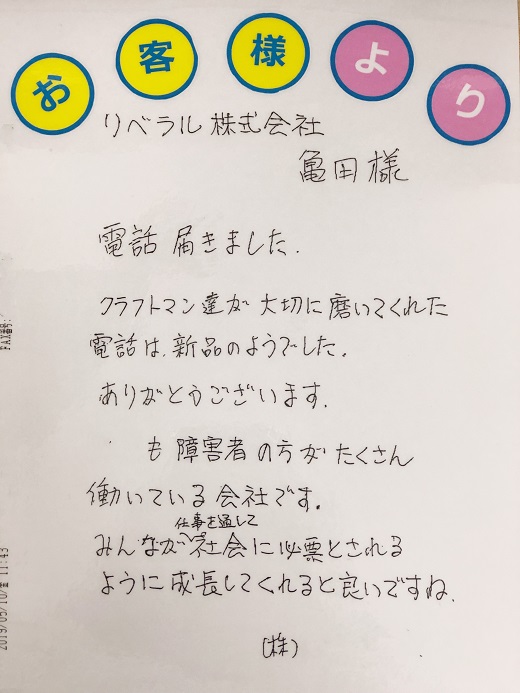 お客様より
リベラル株式会社
亀田様
電話 届きました.
クラフトマン達が 大切に磨いてくれた
電話は、新品のようでした。
ありがとうございます.
も 障害者の方が たくさん
働いている会社です。
仕事を通して
みんなが社会に必票とされる
ように成長してくれると良いですね.
(株)
FAX番号:
2019/05/10/金 11:43